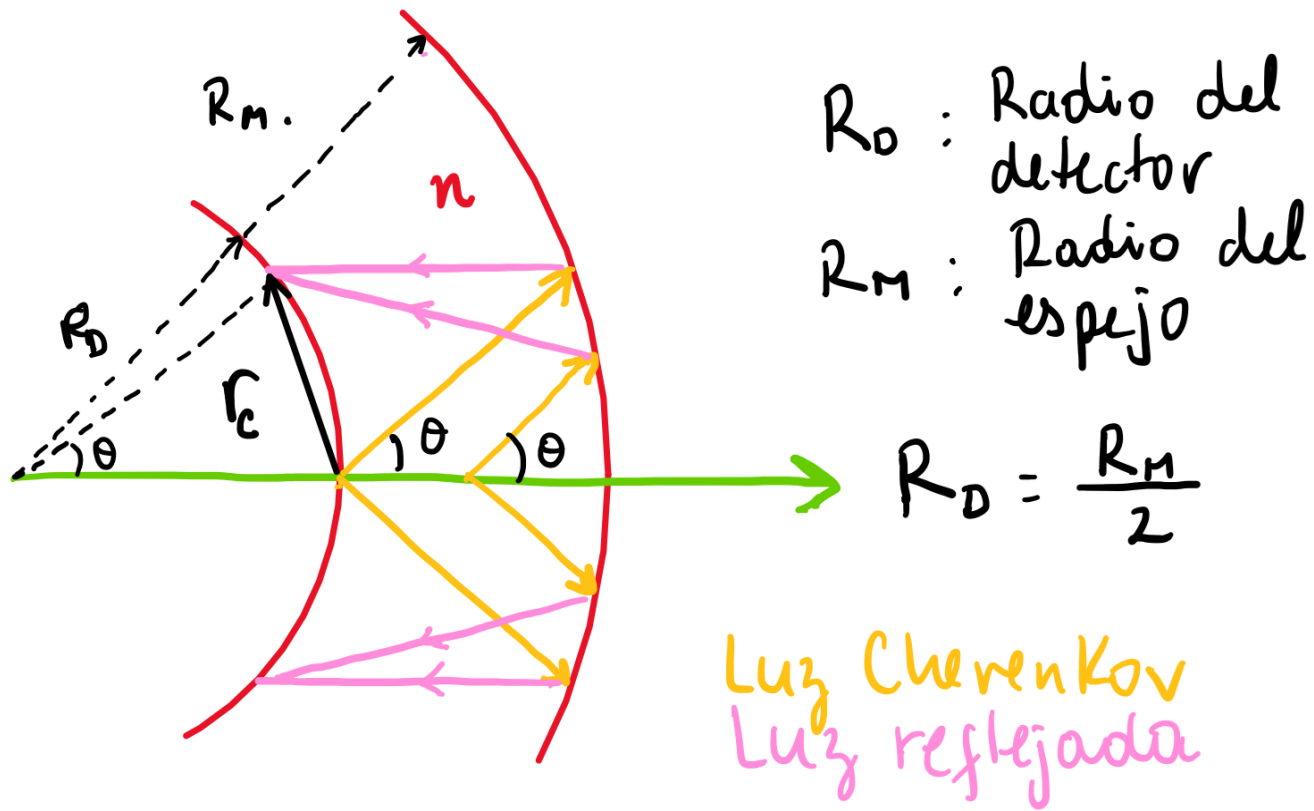 R_M.
n
R_D
r_c
θ
θ
θ
R_D : Radio del
detector
R_M : Radio del
espejo
R_D = R_M / 2
Luz Cherenkov
Luz reflejada